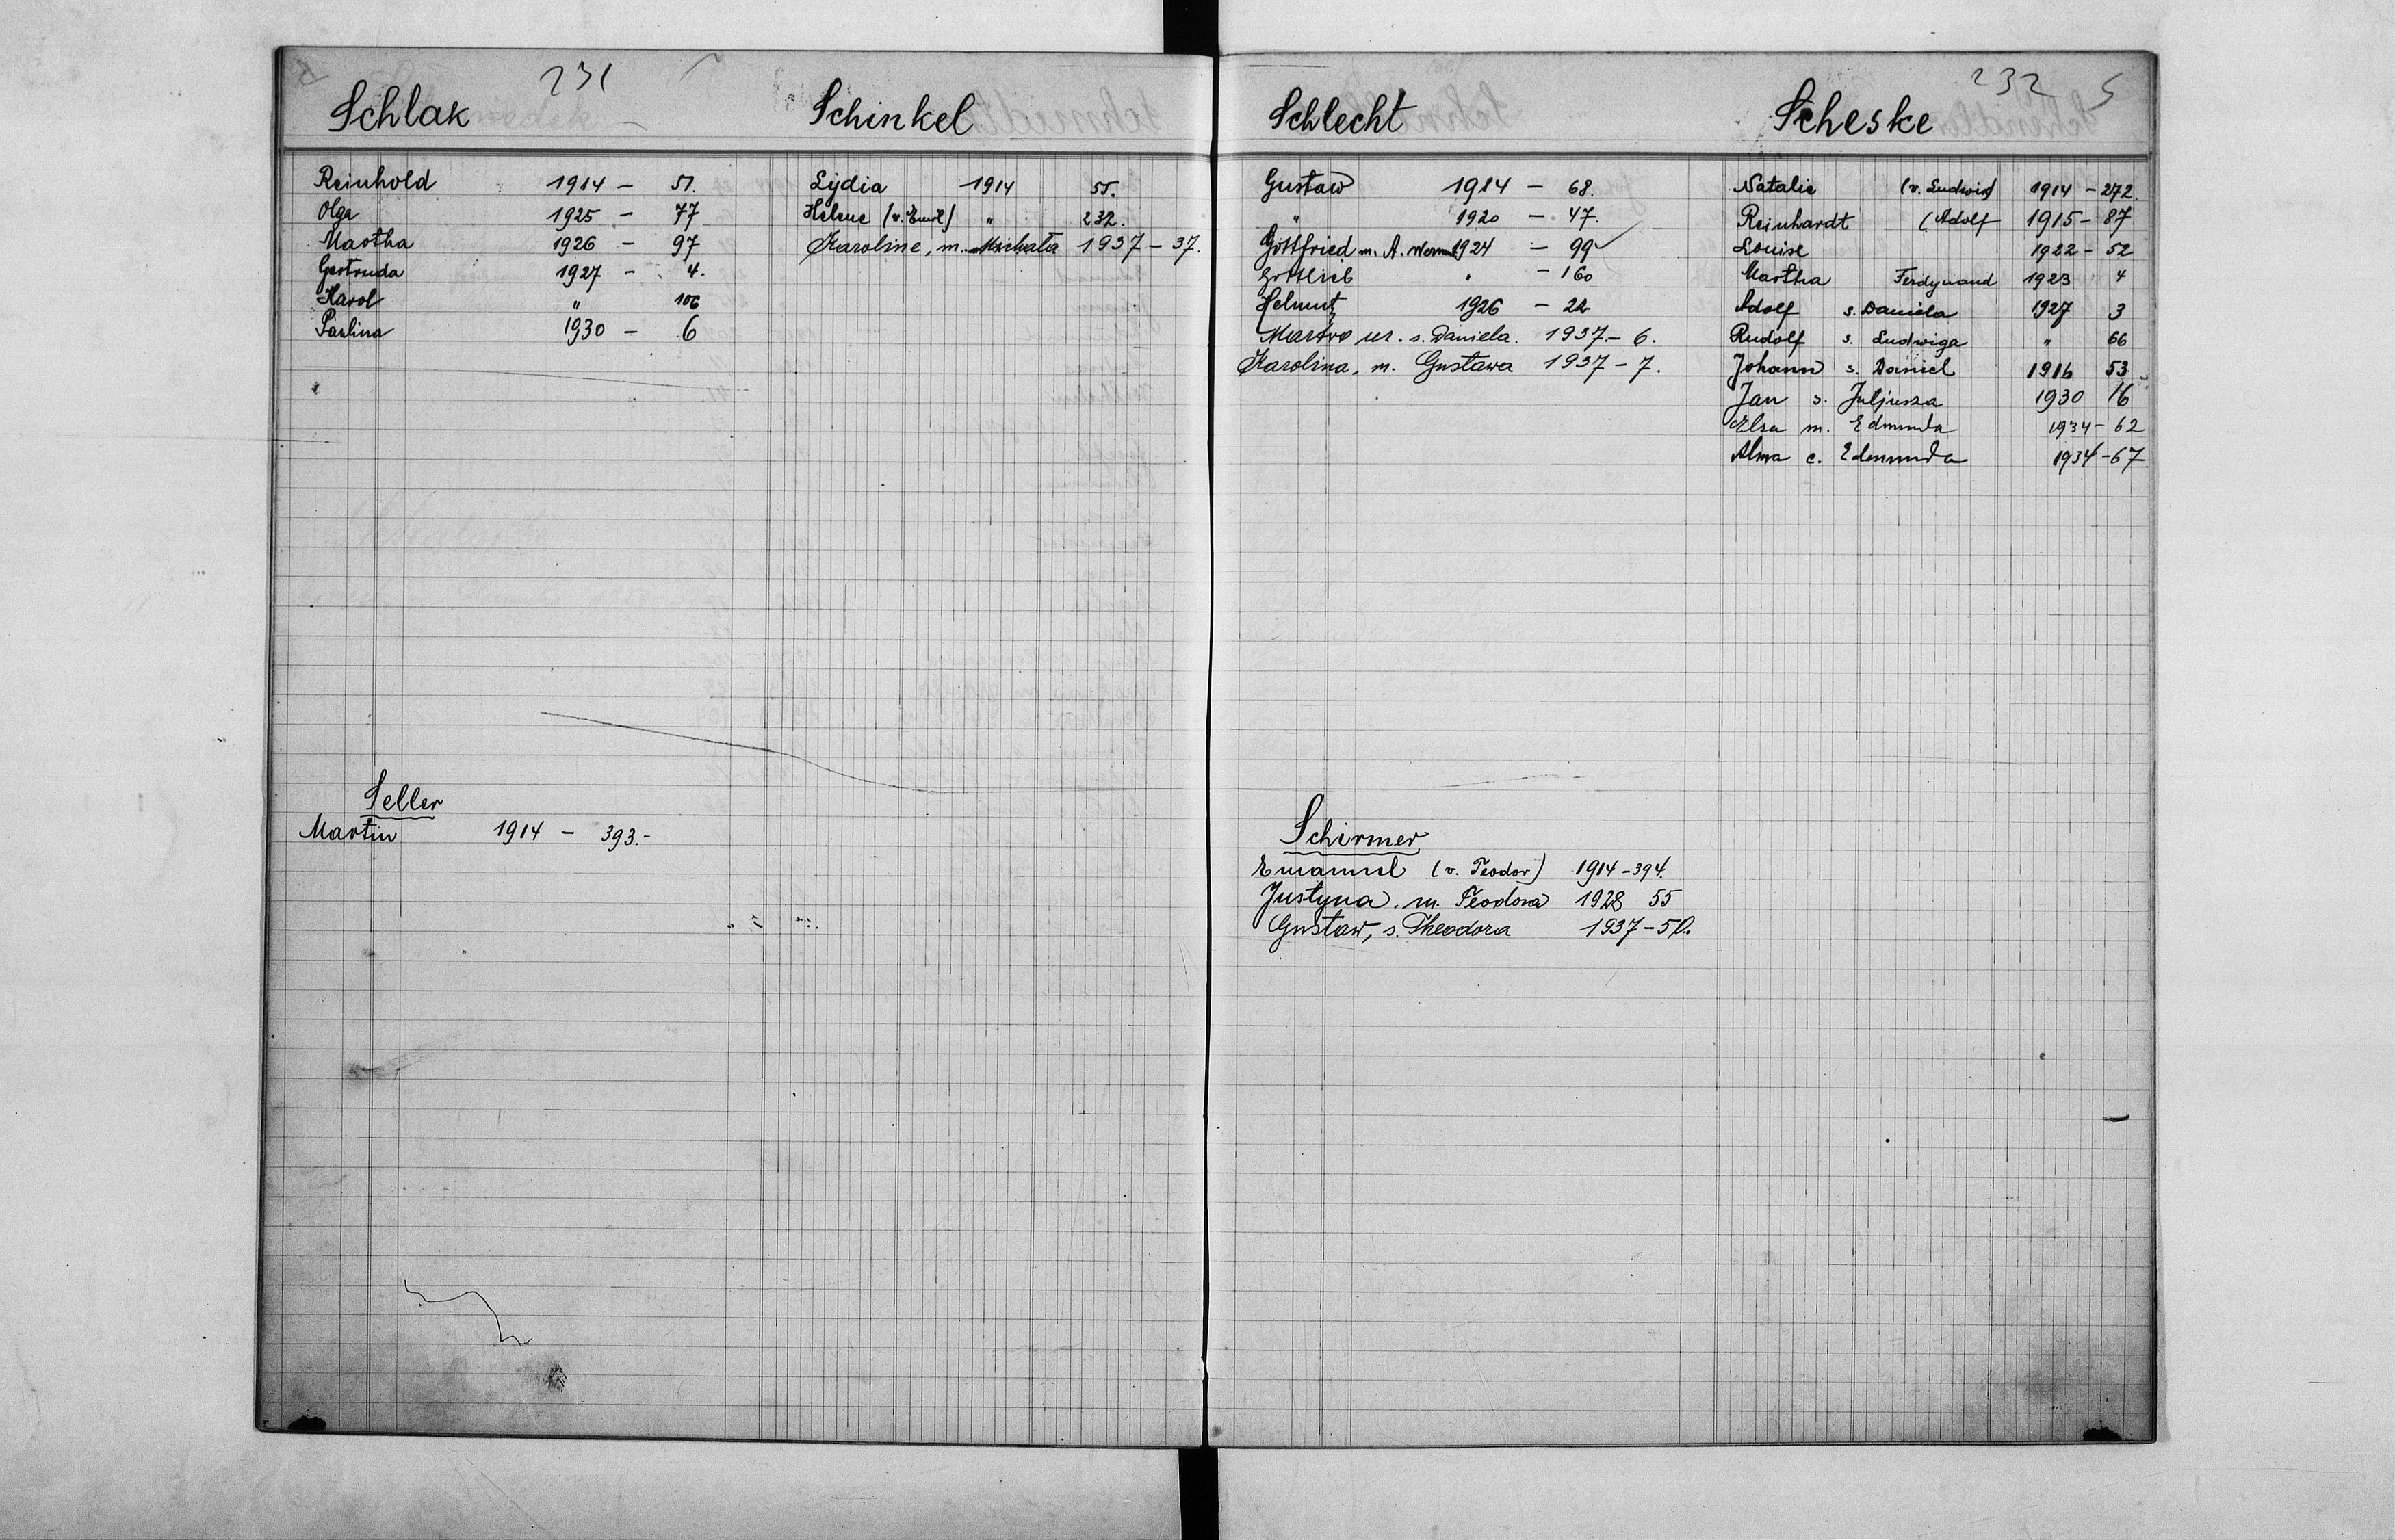 231
Schlak
Reinhold 1914 - 51.
Olga 1925 - 77
Martha 1926 - 97
Gertruda 1927 - 4.
Karol " 106
Paulina 1930 - 6
Seller
Martin 1914 - 393.-
Schinkel
Lydia 1914 55.
Helene (v. Emil) " 232.
Karoline, m. Michała 1937 - 37.
232 S
Schlecht
Gustaw 1914 - 68.
" 1920 - 47.
Gottfried m. A. 1924 - 99
Gottlieb " - 160
Helmut 1926 - 22
ur. s. Daniela. 1937.- 6.
Karolina, m. Gustawa 1937 - 7.
Schirmer
Emanuel (v. Teodor) 1914 - 394.
Justyna. m. Teodora 1928 55
Gustaw, s. Theodora 1937 - 50.
Scheske
Natalie (v. Ludwik) 1914 - 272.
Reinhardt (Adolf 1915 - 87
Louise 1922 - 52
Martha Ferdynand 1923 4
Adolf s. Daniela 1927 3
Rudolf s. Ludwiga " 66
Johann s. Daniel 1916 53
Jan s. Juljusza 1930 16
Elsa m. Edmunda 1934 - 62
Alma c. Edmunda 1934 - 67.